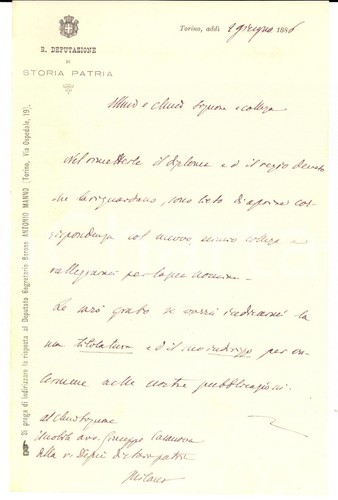 Torino, addì 1 giugno 1886
R. DEPUTAZIONE
DI
STORIA PATRIA
Si prega di indirizzare la risposta al Deputato Segretario Barone ANTONIO MANNO (Torino, Via Ospedale, 19).
Illmo e Chmo Signore e collega
Nel rimetterle il diploma ed il regio decreto
che la riguardano, sono lieto di aprire cor-
rispondenza col nuovo, collega e
rallegrarmi per la sua nomina.
Le sarò grato se vorrà indicarmi la
sua titolatura ed il suo indirizzo per
nelle nostre pubblicazioni.
al Chmo Signore
il nobile avv. Giuseppe Casanova
della r. Depne di storia patria
Milano